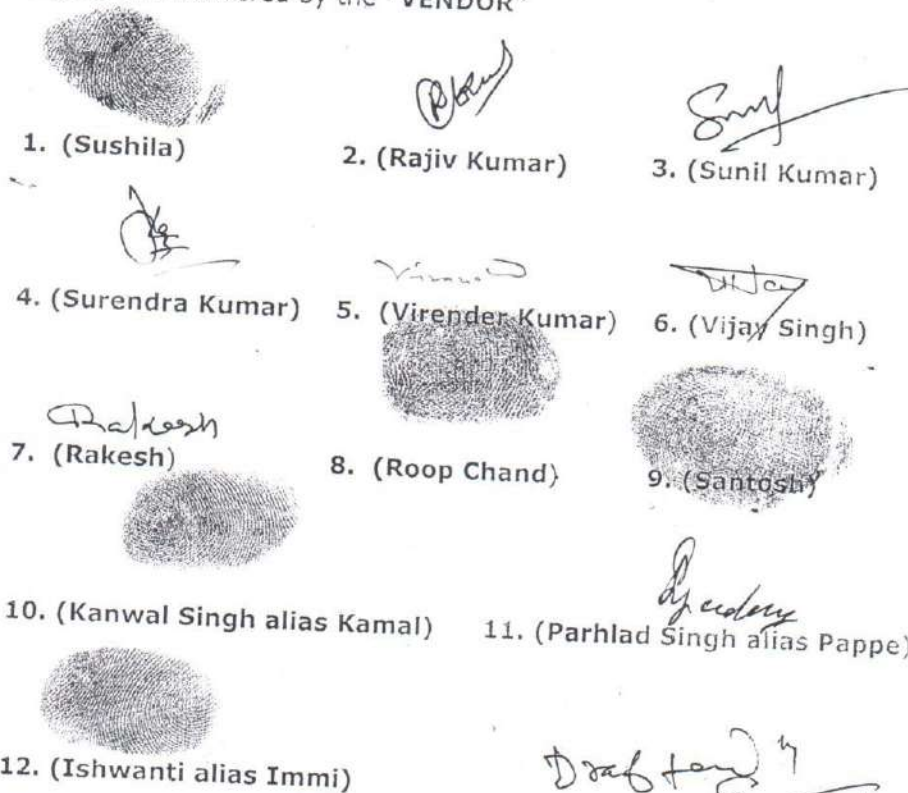 by the "VENDOR"
1. (Sushila)
2. (Rajiv Kumar)
3. (Sunil Kumar)
4. (Surendra Kumar)
5. (Virender Kumar)
6. (Vijay Singh)
Rakesh
7. (Rakesh)
8. (Roop Chand)
9. (Santosh)
10. (Kanwal Singh alias Kamal)
11. (Parhlad Singh alias Pappe)
12. (Ishwanti alias Immi)